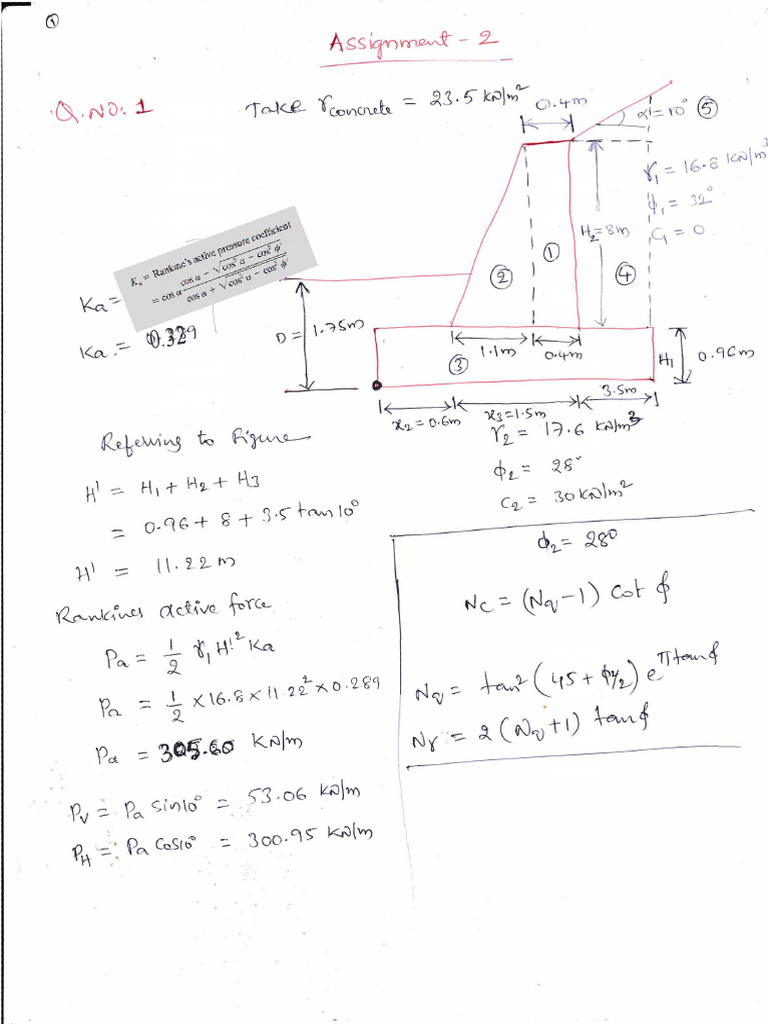 ①
Assignment - 2
Q.NO: 1
Take γconcrete = 23.5 kN/m²
0.4m
α = 10° ⑤
γ₁ = 16.8 kN/m³
ϕ₁ = 32°
C₁ = 0
H₂=8m
① ② ③ ④
Kₐ = Rankine's active pressure coefficient
= cos α (cos α − √(cos² α − cos² ϕ')) / (cos α + √(cos² α − cos² ϕ'))
Ka =
Ka = 0.329
D = 1.75m
1.1m
0.4m
H₁
0.96m
x₂=0.6m
x₃=1.5m
3.5m
γ₂ = 17.6 kN/m³
ϕ₂ = 28°
C₂ = 30 kN/m²
Referring to Figure
H' = H₁ + H₂ + H₃
= 0.96 + 8 + 3.5 tan 10°
H' = 11.22 m
Rankines active force
Pa = 1/2 γ₁ H'² Ka
Pa = 1/2 × 16.8 × 11.22² × 0.289
Pa = 305.60 kN/m
Pv = Pa sin10° = 53.06 kN/m
PH = Pa cos10° = 300.95 kN/m
ϕ₂ = 28°
Nc = (Nq - 1) cot ϕ
Nq = tan² (45 + ϕ/2) e^πtanϕ
Nγ = 2 (Nq + 1) tanϕ